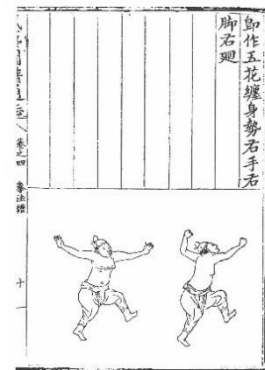 卽作五花纏身勢右手右
脚右廻
卷之四 拳法譜 十一